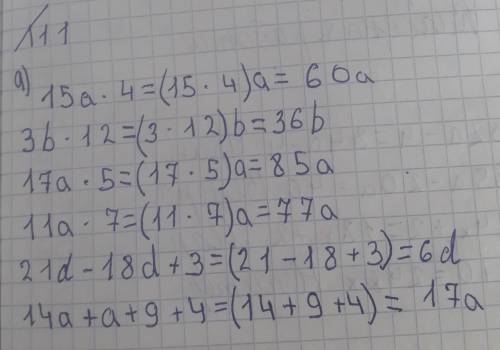 №11
а) 15a · 4=(15 · 4)a= 60a
3b · 12=(3 · 12)b=36b
17a · 5=(17 · 5)a=85a
11a · 7=(11 · 7)a=77a
21d-18d+3=(21-18+3)=6d
14a+a+9+4=(14+9+4)= 17a